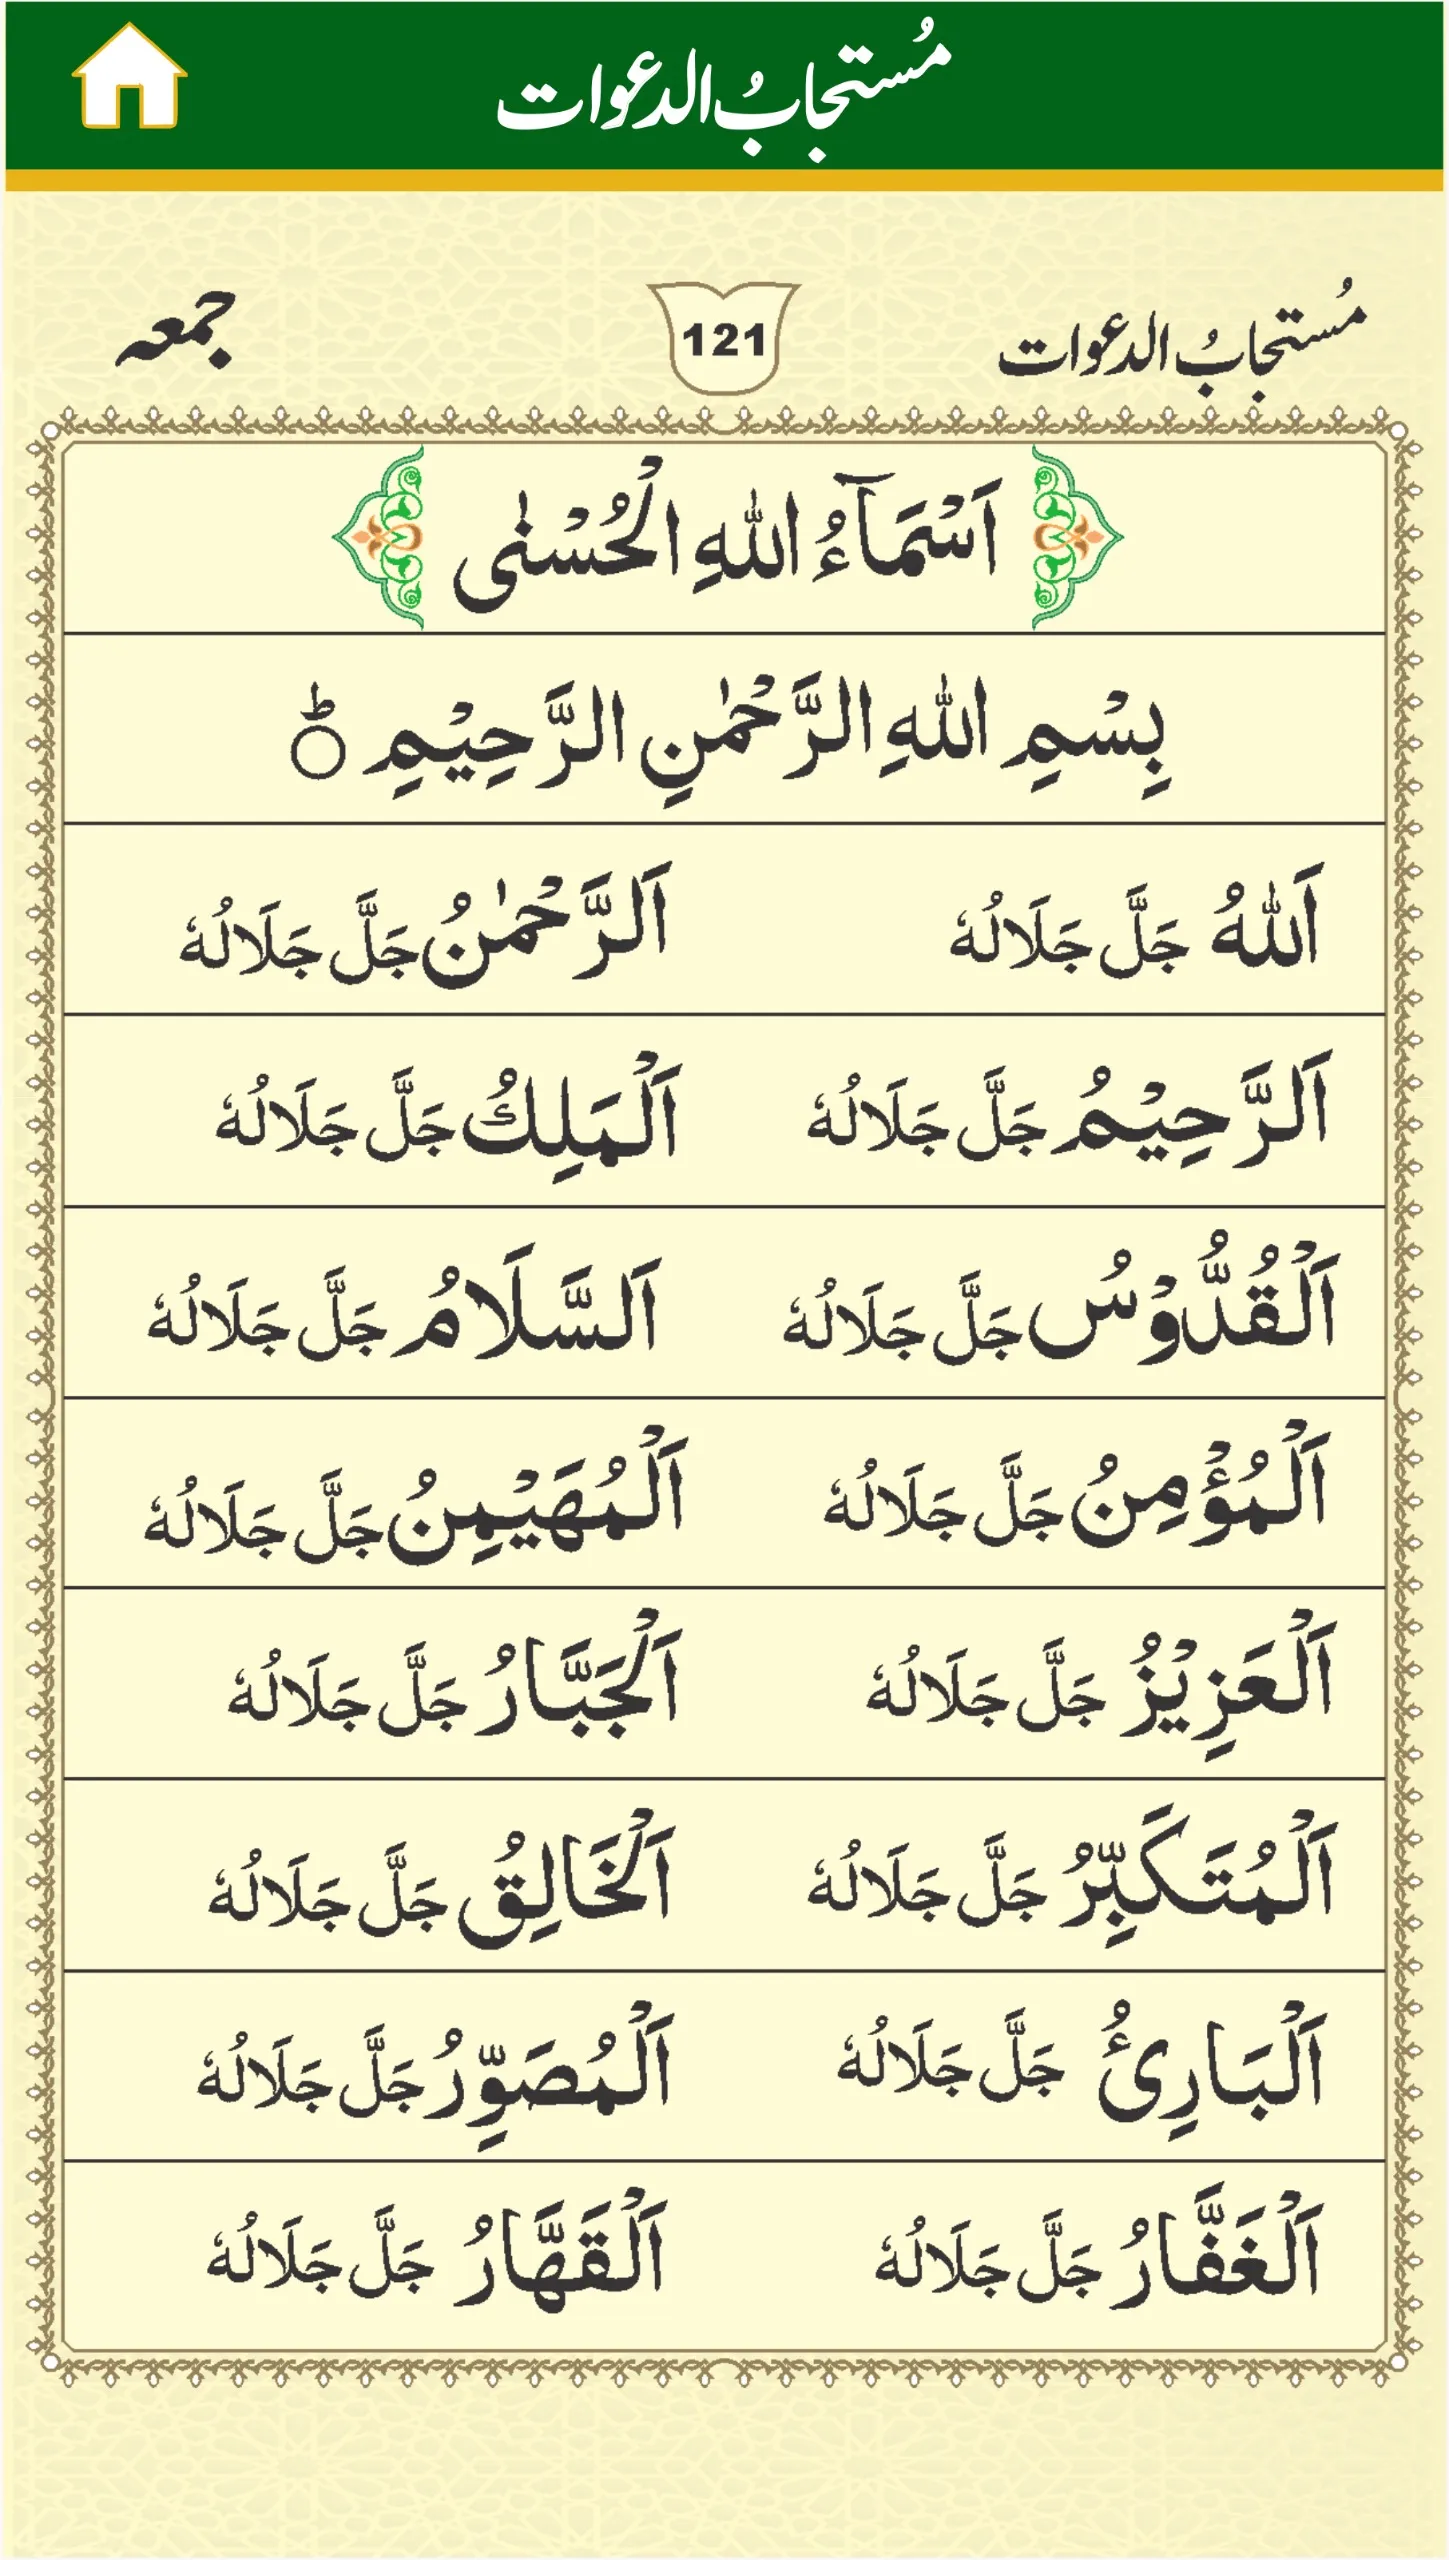 مُستجابُ الدعوات
مُستجابُ الدعوات 121 جمعہ
اَسْمَآءُ اللهِ الْحُسْنٰى
بِسْمِ اللهِ الرَّحْمٰنِ الرَّحِيْمِ ○ؕ
اَللهُ جَلَّ جَلَالُهٗ اَلرَّحْمٰنُ جَلَّ جَلَالُهٗ
اَلرَّحِيْمُ جَلَّ جَلَالُهٗ اَلْمَلِكُ جَلَّ جَلَالُهٗ
اَلْقُدُّوْسُ جَلَّ جَلَالُهٗ اَلسَّلَامُ جَلَّ جَلَالُهٗ
اَلْمُؤْمِنُ جَلَّ جَلَالُهٗ اَلْمُهَيْمِنُ جَلَّ جَلَالُهٗ
اَلْعَزِيْزُ جَلَّ جَلَالُهٗ اَلْجَبَّارُ جَلَّ جَلَالُهٗ
اَلْمُتَكَبِّرُ جَلَّ جَلَالُهٗ اَلْخَالِقُ جَلَّ جَلَالُهٗ
اَلْبَارِئُ جَلَّ جَلَالُهٗ اَلْمُصَوِّرُ جَلَّ جَلَالُهٗ
اَلْغَفَّارُ جَلَّ جَلَالُهٗ اَلْقَهَّارُ جَلَّ جَلَالُهٗ